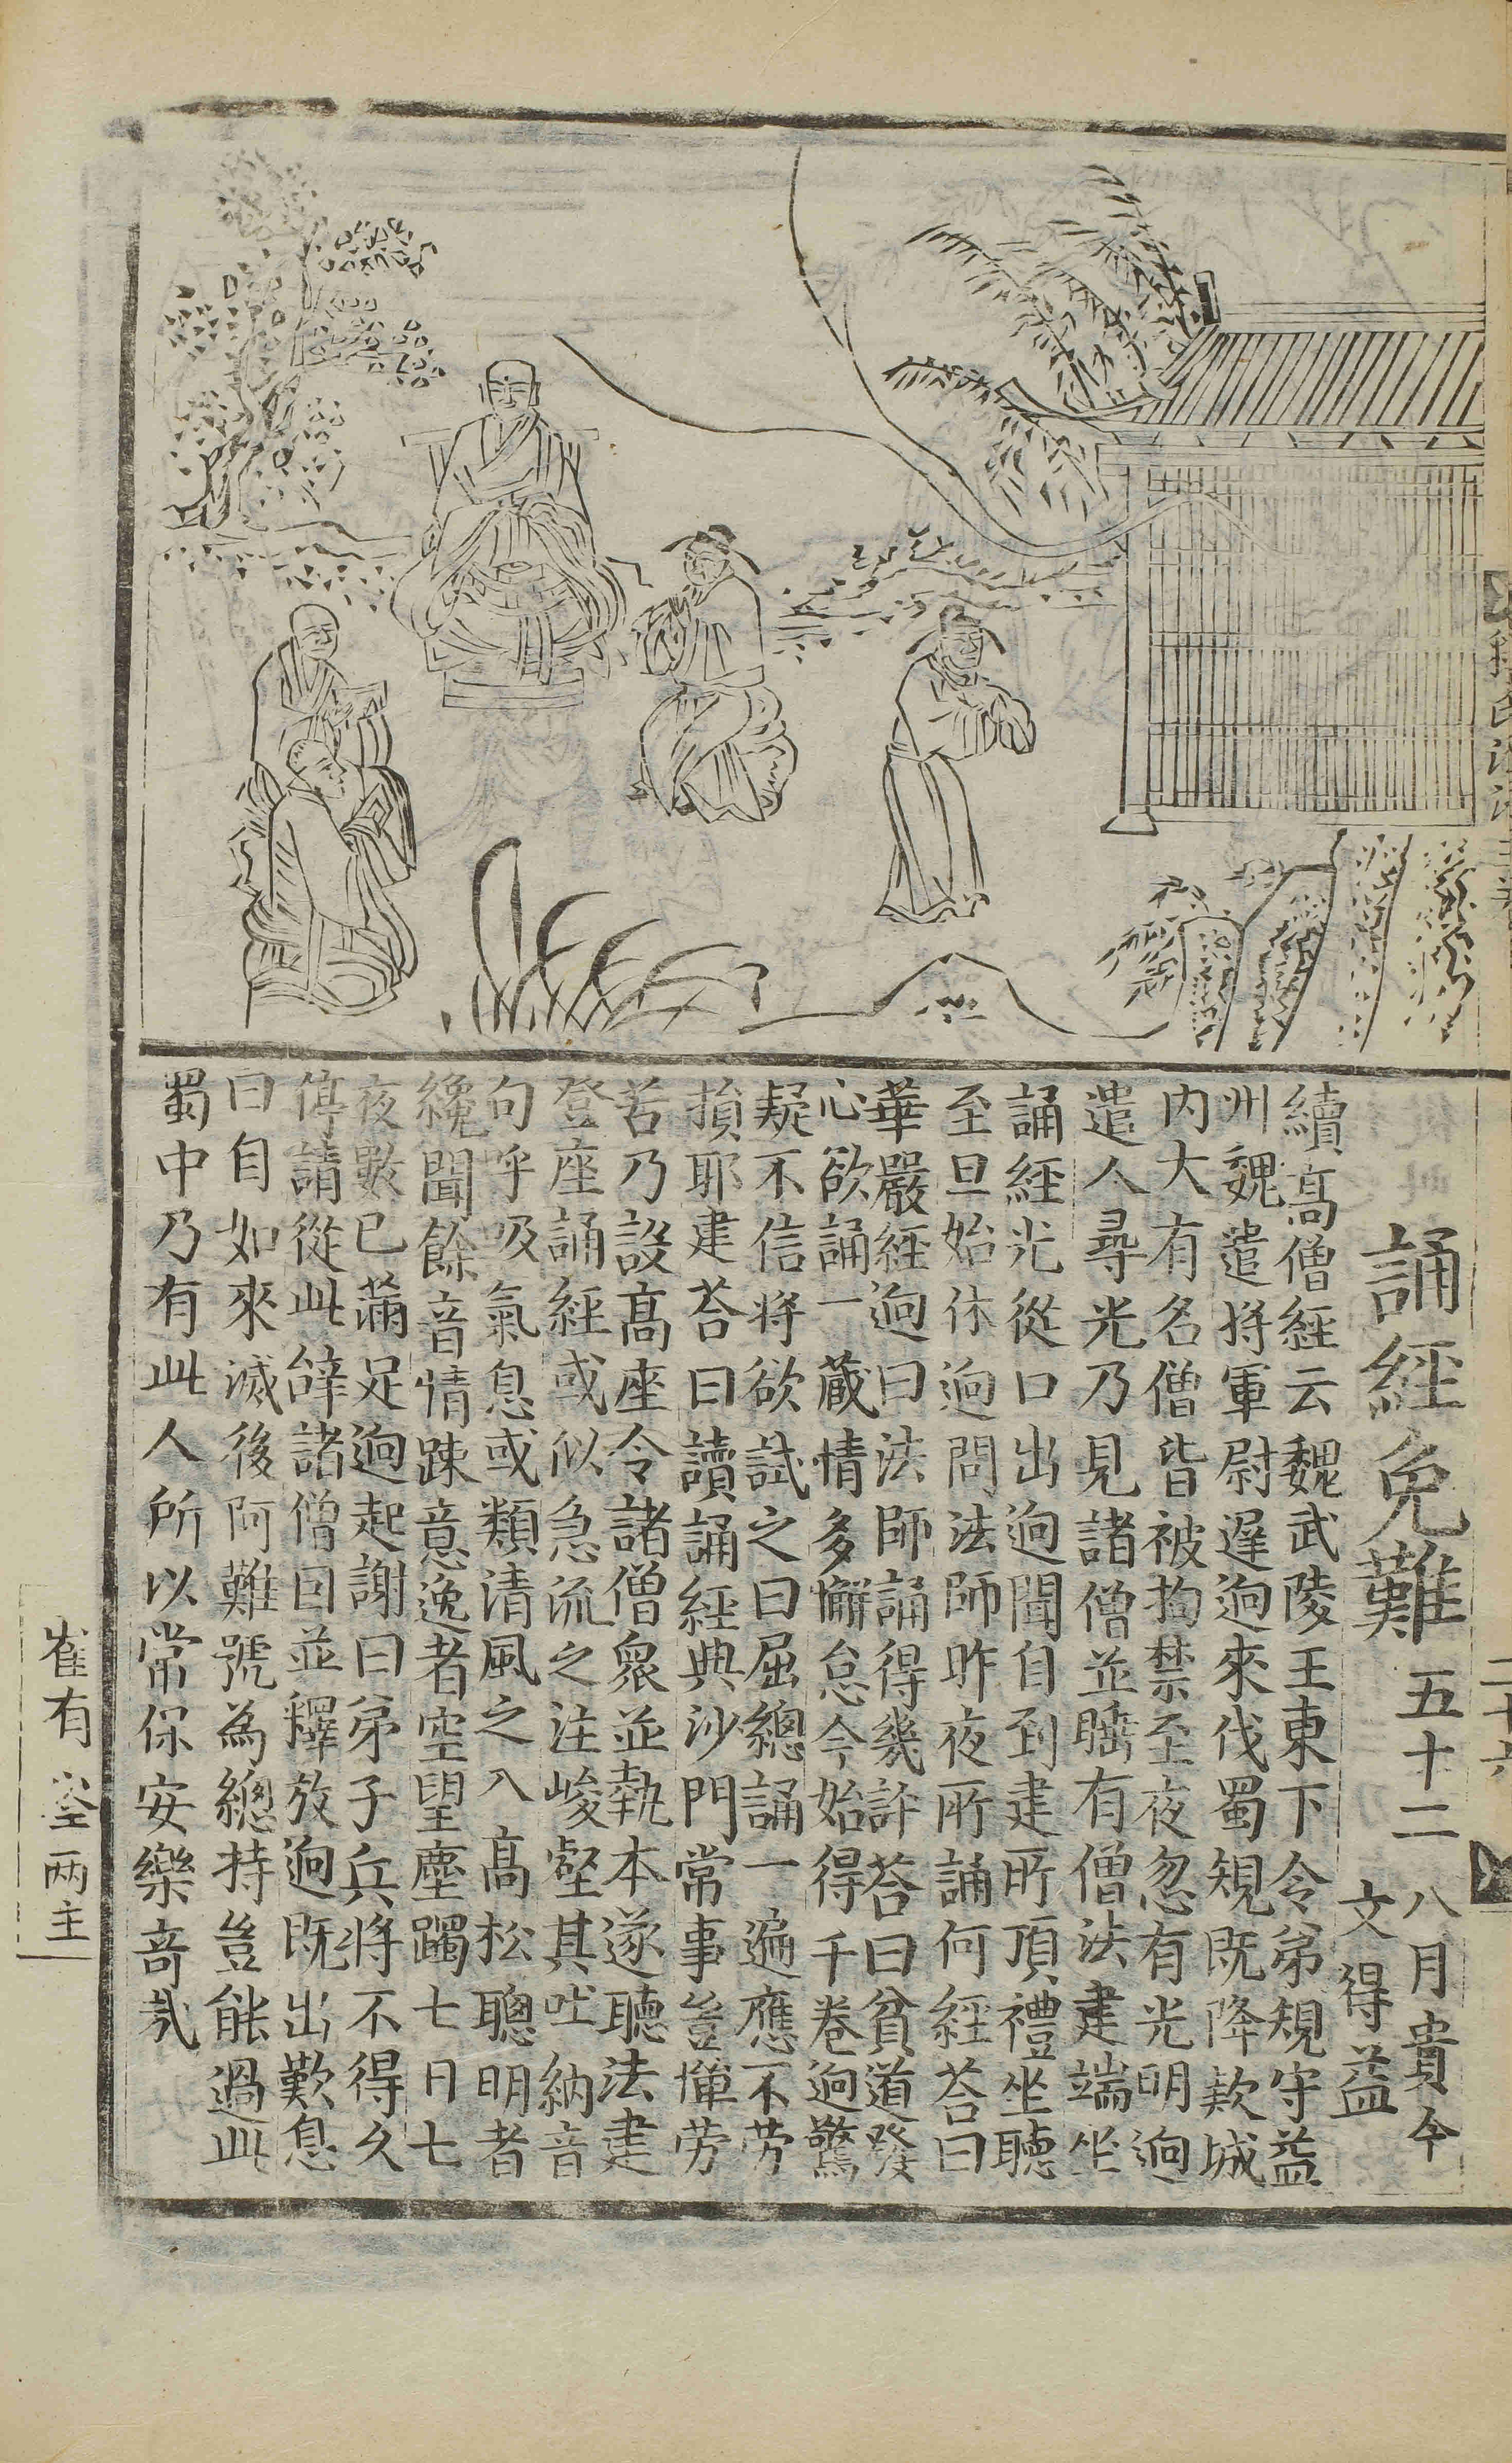 誦經免難 五十二
八月貴今
文得益
續高僧經云魏武陵王東下令弟規守益
州魏遣將軍尉遲逈來伐蜀規既降款城
内大有名僧皆被拘禁至夜忽有光明逈
遣人尋光乃見諸僧並睡有僧法建端坐
誦經光從口出逈聞自到建所頂禮坐聽
至旦始休逈問法師昨夜所誦何經荅曰
華嚴經逈曰法師誦得幾許荅曰貧道發
心欲誦一藏情多懈怠今始得千卷逈驚
疑不信将欲試之曰屈總誦一遍應不劳
損耶建荅曰讀誦經典沙門常事豈憚劳
苦乃設髙座令諸僧眾並執本遂聽法建
登座誦經或似急流之注峻壑其吐納音
句呼吸氣息或類清風之入髙松聰明者
纔聞餘音情踈意逸者空望塵躅七日七
夜數已滿足逈起謝曰弟子兵將不得久
停請從此辭諸僧曰並釋放逈既出歎息
曰自如來滅後阿難號為總持豈能過此
蜀中乃有此人所以常保安樂竒㢤
崔有 兩主